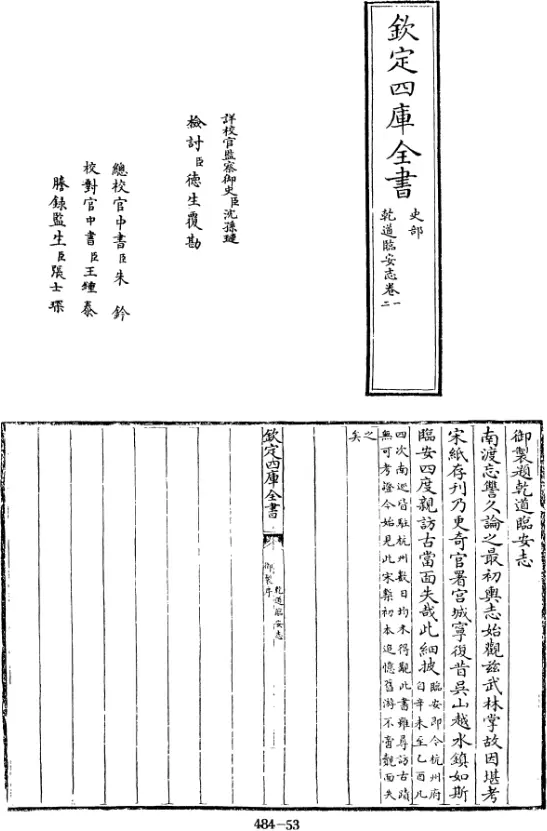 欽定四庫全書
史部
乾道臨安志卷一
二
詳校官監察御史臣沈孫璉
檢討臣德生覆勘
總校官中書臣朱鈐
校對官中書臣王鍾泰
謄錄監生臣張士
御製題乾道臨安志
南渡忘讐久論之最初輿志始觀茲武林掌故因堪考
宋紙存刊乃更奇官署宫城寧復昔吳山越水鎮如斯
臨安四度親訪古當面失哉此細披臨安即今杭州府
自辛未至乙酉凡
四次南巡皆駐杭州數日均未得觀此書雖尋訪古蹟
無可考證今始見此宋槧初本追憶舊游不啻覿面失
之
矣
欽定四庫全書
乾道臨安志
御製序
484-53